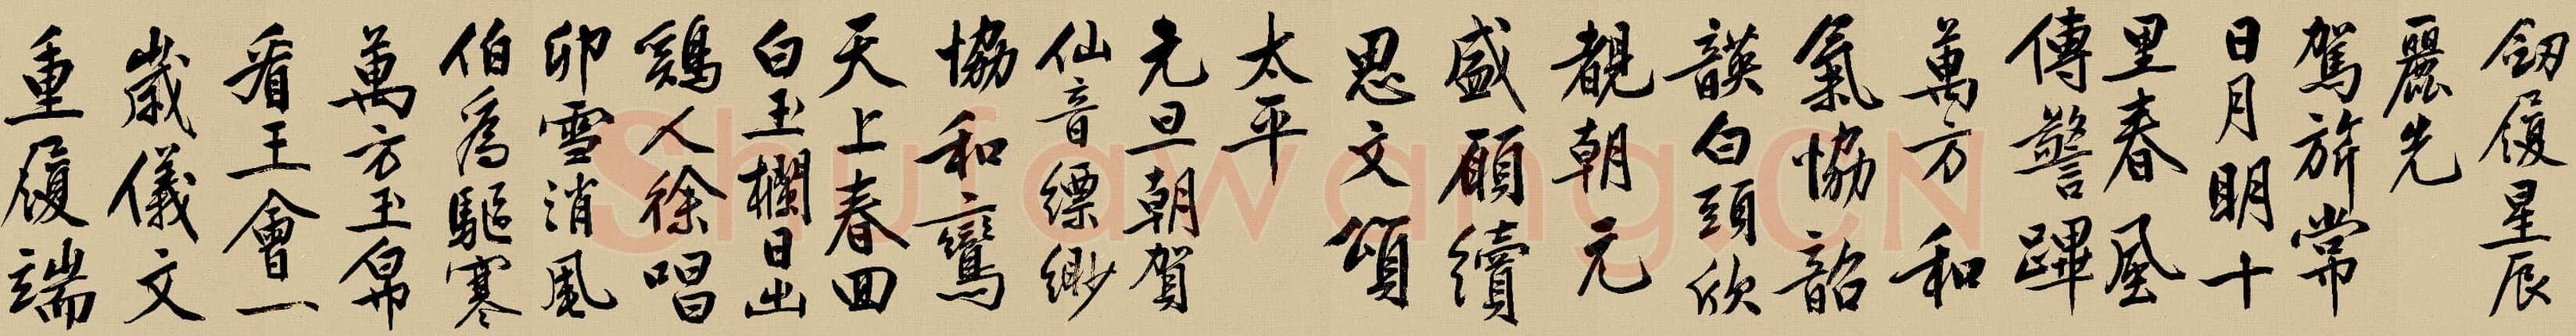 釼履星辰
麗先
駕旂常
日月明十
里春風
傳警蹕
萬方和
氣協韶
韺白頭欣
覩朝元
盛願續
思文頌
太平
元旦朝賀
仙音縹緲
協和鸞
天上春回
白玉欄日出
鷄人徐唱
卯雪消風
伯為驅寒
萬方玉帛
看王會一
歲儀文
重履端
Shufawang.CN